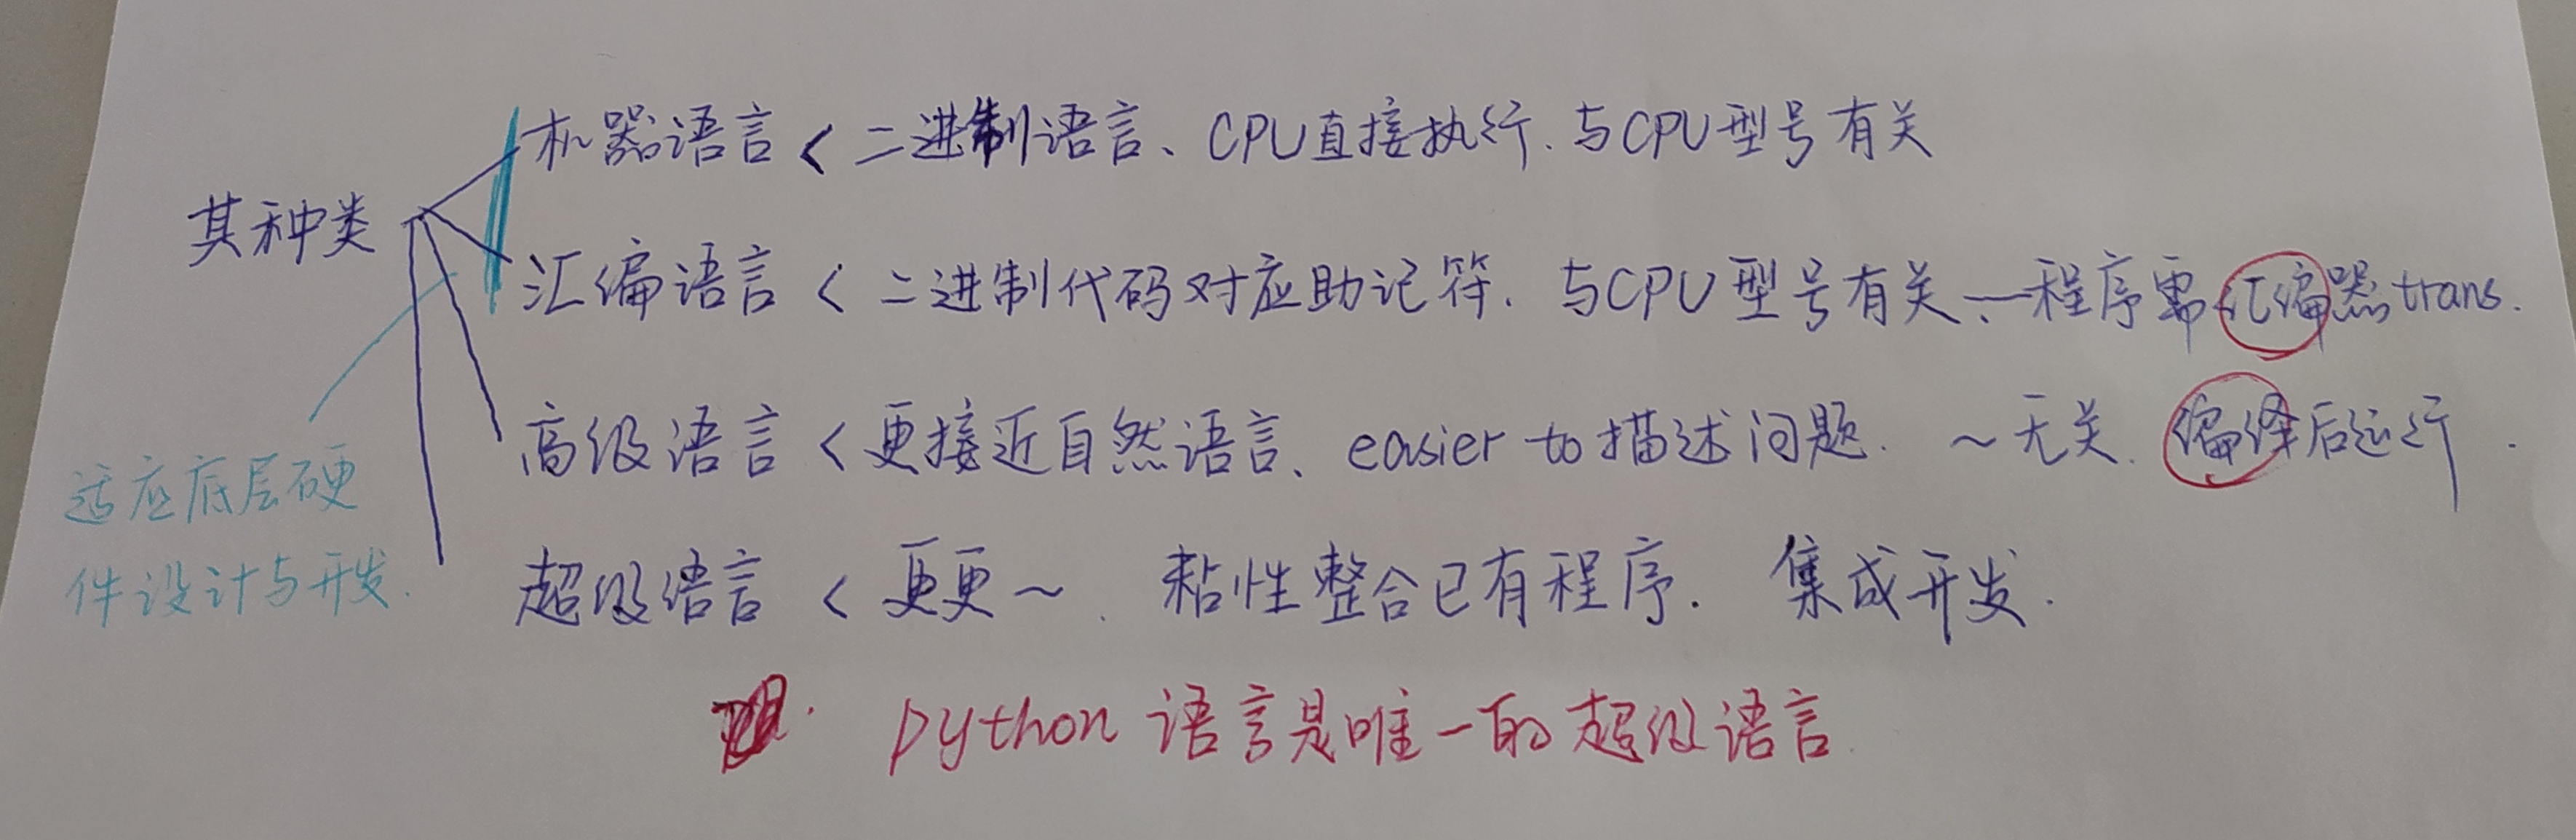 机器语言 < 二进制语言、CPU直接执行. 与CPU型号有关
其种类
汇编语言 < 二进制代码对应助记符. 与CPU型号有关、—程序需汇编器trans.
高级语言 < 更接近自然语言、easier to 描述问题. ～无关. 编译后运行.
适应底层硬
件设计与开发.
超级语言 < 更更～. 粘性整合已有程序. 集成开发.
python 语言是唯一的超级语言.